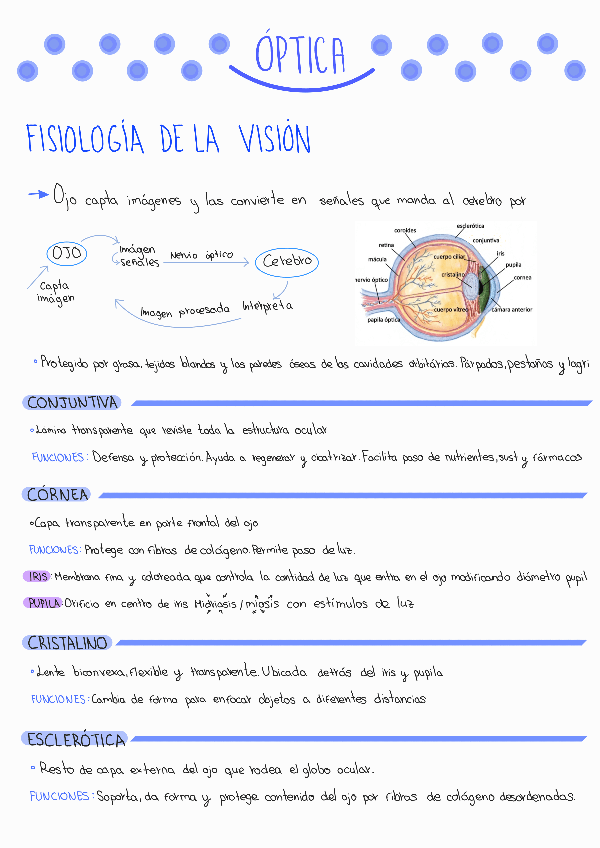 ÓPTICA
FISIOLOGÍA DE LA VISIÓN
→ Ojo capta imágenes y las convierte en señales que manda al cerebro por
OJO
Imágen
señales
Nervio óptico
Cerebro
Capta
imágen
Imagen procesada
Interpreta
esclerótica
coroides
conjuntiva
retina
iris
cuerpo ciliar
mácula
pupila
cristalino
cornea
nervio óptico
cuerpo vítreo
cámara anterior
papila óptica
• Protegido por grasa, tejidos blandos y las paredes óseas de las cavidades orbitárias. Párpados, pestañas y lagri
CONJUNTIVA
• Lámina transparente que reviste toda la estructura ocular
FUNCIONES: Defensa y protección. Ayuda a regenerar y cicatrizar. Facilita paso de nutrientes, sust y fármacos
CÓRNEA
• Capa transparente en parte frontal del ojo
FUNCIONES: Protege con fibras de colágeno. Permite paso de luz.
IRIS: Membrana fina y coloreada que controla la cantidad de luz que entra en el ojo modificando diámetro pupil
PUPILA: Orificio en centro de iris Midriasis / miosis con estímulos de luz
CRISTALINO
• Lente biconvexa, flexible y transparente. Ubicada detrás del iris y pupila
FUNCIONES: Cambia de forma para enfocar objetos a diferentes distancias
ESCLERÓTICA
• Resto de capa externa del ojo que rodea el globo ocular.
FUNCIONES: Soporta, da forma y protege contenido del ojo por fibras de colágeno desordenadas.